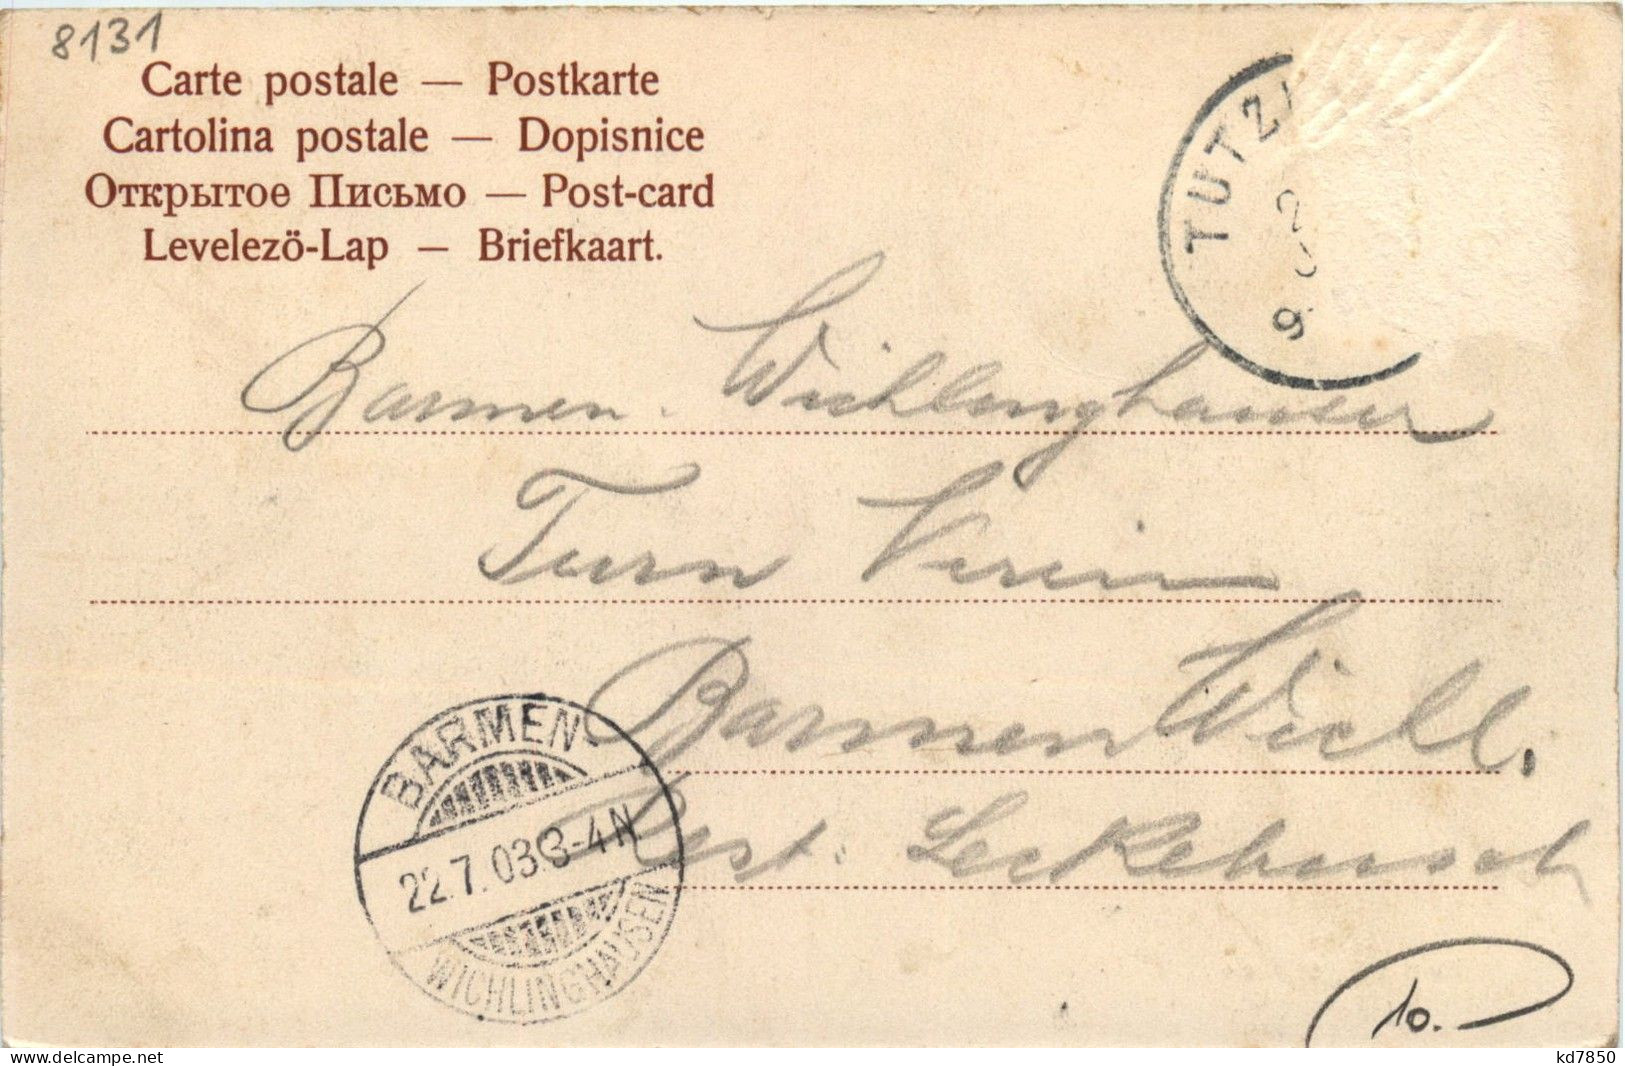 8131
Carte postale — Postkarte
Cartolina postale — Dopisnice
Открытое Письмо — Post-card
Levelezö-Lap — Briefkaart.
TUTZ
2
9
Barmen. Wichlinghauser
Turn Verein
Barmen Wichl.
Rest. Leckebusch
BARMEN-
22.7.03 3-4N.
WICHLINGHAUSEN
10.
kd7850